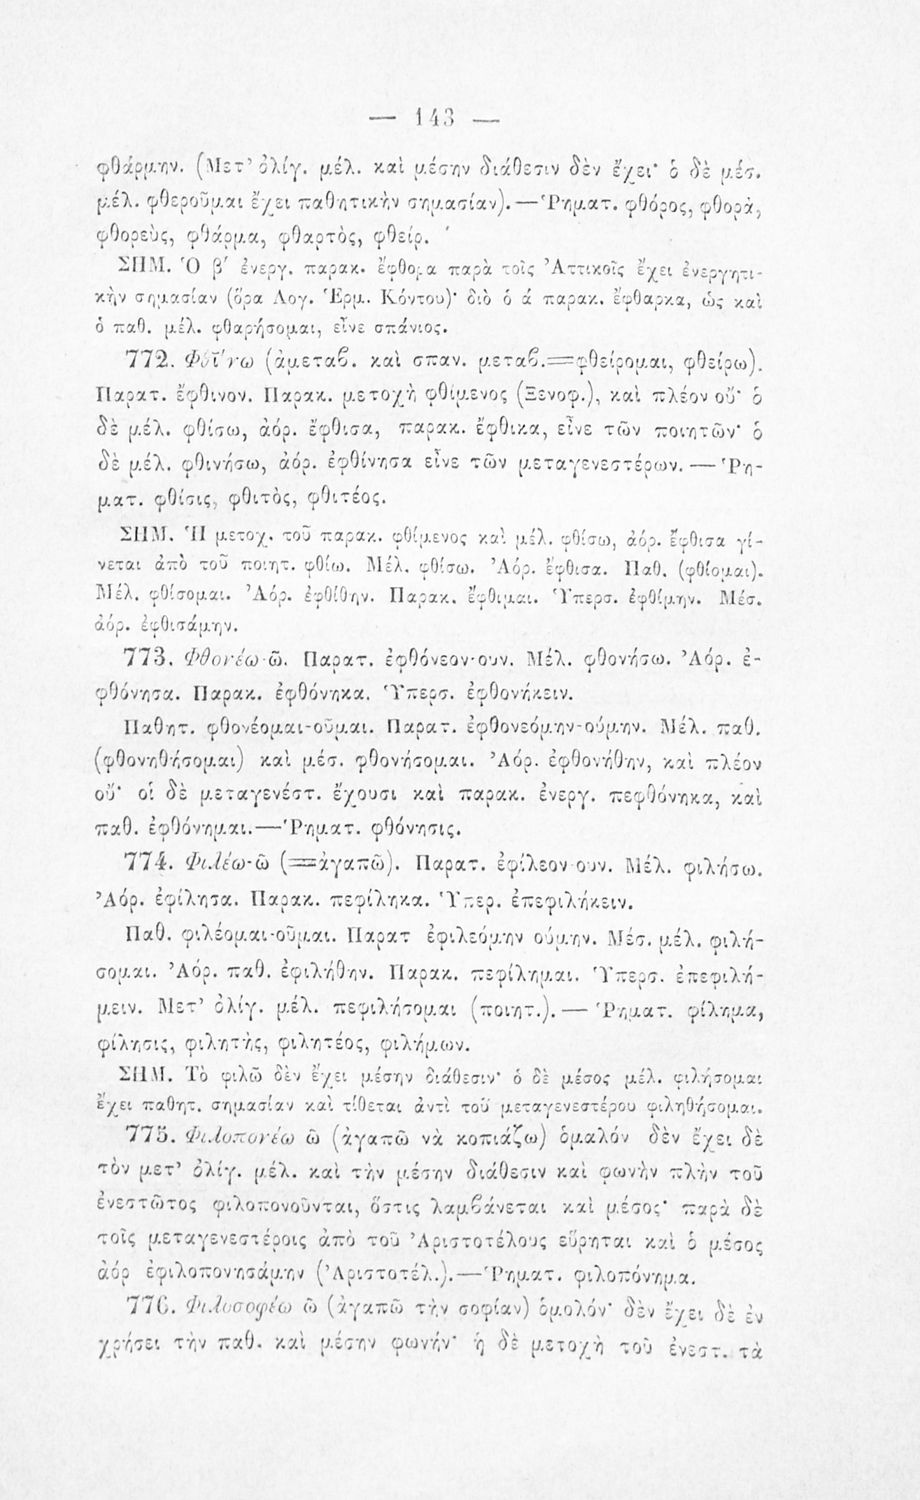 — 143 —
φθάρμην. (Μετ’ ὀλίγ. μέλ. καὶ μέσην διάθεσιν δὲν ἔχει· ὁ δὲ μέσ.
μέλ. φθεροῦμαι ἔχει παθητικὴν σημασίαν).—Ῥηματ. φθόρος, φθορὰ,
φθορεὺς, φθάρμα, φθαρτὸς, φθείρ.
ΣΗΜ. Ὁ β′ ἐνεργ. παρακ. ἔφθορα παρὰ τοῖς Ἀττικοῖς ἔχει ἐνεργητι-
κὴν σημασίαν (ὅρα Λογ. Ἑρμ. Κόντου)· διὸ ὁ ά παρακ. ἔφθαρκα, ὡς καὶ
ὁ παθ. μέλ. φθαρήσομαι, εἶνε σπάνιος.
772. Φθίνω (ἀμεταβ. καὶ σπαν. μεταβ.=φθείρομαι, φθείρω).
Παρατ. ἔφθινον. Παρακ. μετοχὴ φθίμενος (Ξενοφ.), καὶ πλέον οὔ· ὁ
δὲ μέλ. φθίσω, ἀόρ. ἔφθισα, παρακ. ἔφθικα, εἶνε τῶν ποιητῶν· ὁ
δὲ μέλ. φθινήσω, ἀόρ. ἐφθίνησα εἶνε τῶν μεταγενεστέρων.—Ῥη-
ματ. φθίσις, φθιτὸς, φθιτέος.
ΣΗΜ. Ἡ μετοχ. τοῦ παρακ. φθίμενος καὶ μέλ. φθίσω, ἀόρ. ἔφθισα γί-
νεται ἀπὸ τοῦ ποιητ. φθίω. Μέλ. φθίσω. Ἀόρ. ἔφθισα. Παθ. (φθίομαι).
Μέλ. φθίσομαι. Ἀόρ. ἐφθίθην. Παρακ. ἔφθιμαι. Ὑπερσ. ἐφθίμην. Μέσ.
ἀόρ. ἐφθισάμην.
773. Φθονέω-ῶ. Παρατ. ἐφθόνεον-ουν. Μέλ. φθονήσω. Ἀόρ. ἐ-
φθόνησα. Παρακ. ἐφθόνηκα. Ὑπερσ. ἐφθονήκειν.
Παθητ. φθονέομαι-οῦμαι. Παρατ. ἐφθονεόμην-ούμην. Μέλ. παθ.
(φθονηθήσομαι) καὶ μέσ. φθονήσομαι. Ἀόρ. ἐφθονήθην, καὶ πλέον
οὔ· οἱ δὲ μεταγενέστ. ἔχουσι καὶ παρακ. ἐνεργ. πεφθόνηκα, καὶ
παθ. ἐφθόνημαι.—Ῥηματ. φθόνησις.
774. Φιλέω-ῶ (=ἀγαπῶ). Παρατ. ἐφίλεον-ουν. Μέλ. φιλήσω.
Ἀόρ. ἐφίλησα. Παρακ. πεφίληκα. Ὑπερ. ἐπεφιλήκειν.
Παθ. φιλέομαι-οῦμαι. Παρατ ἐφιλεόμην ούμην. Μέσ. μέλ. φιλή-
σομαι. Ἀόρ. παθ. ἐφιλήθην. Παρακ. πεφίλημαι. Ὑπερσ. ἐπεφιλή-
μειν. Μετ’ ὀλίγ. μέλ. πεφιλήσομαι (ποιητ.).— Ῥηματ. φίλημα,
φίλησις, φιλητὴς, φιλητέος, φιλήμων.
ΣΗΜ. Τὸ φιλῶ δὲν ἔχει μέσην διάθεσιν· ὁ δὲ μέσος μέλ. φιλήσομαι
ἔχει παθητ. σημασίαν καὶ τίθεται ἀντὶ τοῦ μεταγενεστέρου φιληθήσομαι.
775. Φιλοπονέω ῶ (ἀγαπῶ νὰ κοπιάζω) ὁμαλόν δὲν ἔχει δὲ
τὸν μετ’ ὀλίγ. μέλ. καὶ τὴν μέσην διάθεσιν καὶ φωνὴν πλὴν τοῦ
ἐνεστῶτος φιλοπονοῦνται, ὅστις λαμβάνεται καὶ μέσος· παρὰ δὲ
τοῖς μεταγενεστέροις ἀπὸ τοῦ Ἀριστοτέλους εὕρηται καὶ ὁ μέσος
ἀόρ ἐφιλοπονησάμην (Ἀριστοτέλ.).—Ῥηματ. φιλοπόνημα.
776. Φιλοσοφέω ῶ (ἀγαπῶ τὴν σοφίαν) ὁμολόν· δὲν ἔχει δὲ ἐν
χρήσει τὴν παθ. καὶ μέσην φωνήν· ἡ δὲ μετοχὴ τοῦ ἐνεστ. τὰ